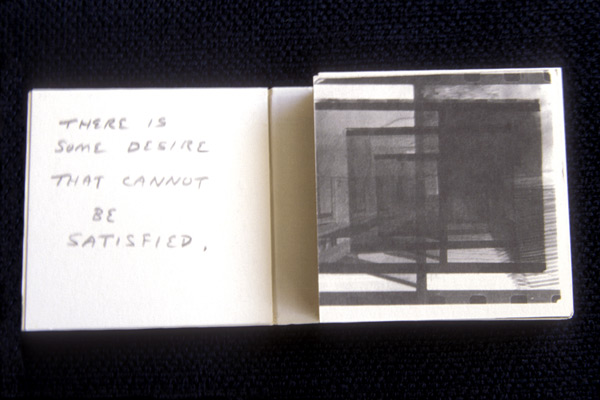 THERE IS
SOME DESIRE
THAT CANNOT
BE
SATISFIED.